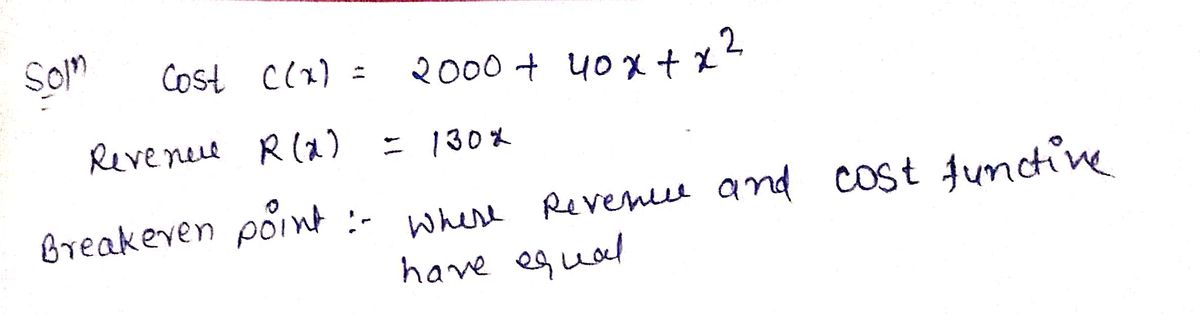 Soln Cost C(x) = 2000 + 40x + x²
Revenue R(x) = 130x
Breakeven point :- where Revenue and cost functive
have equal